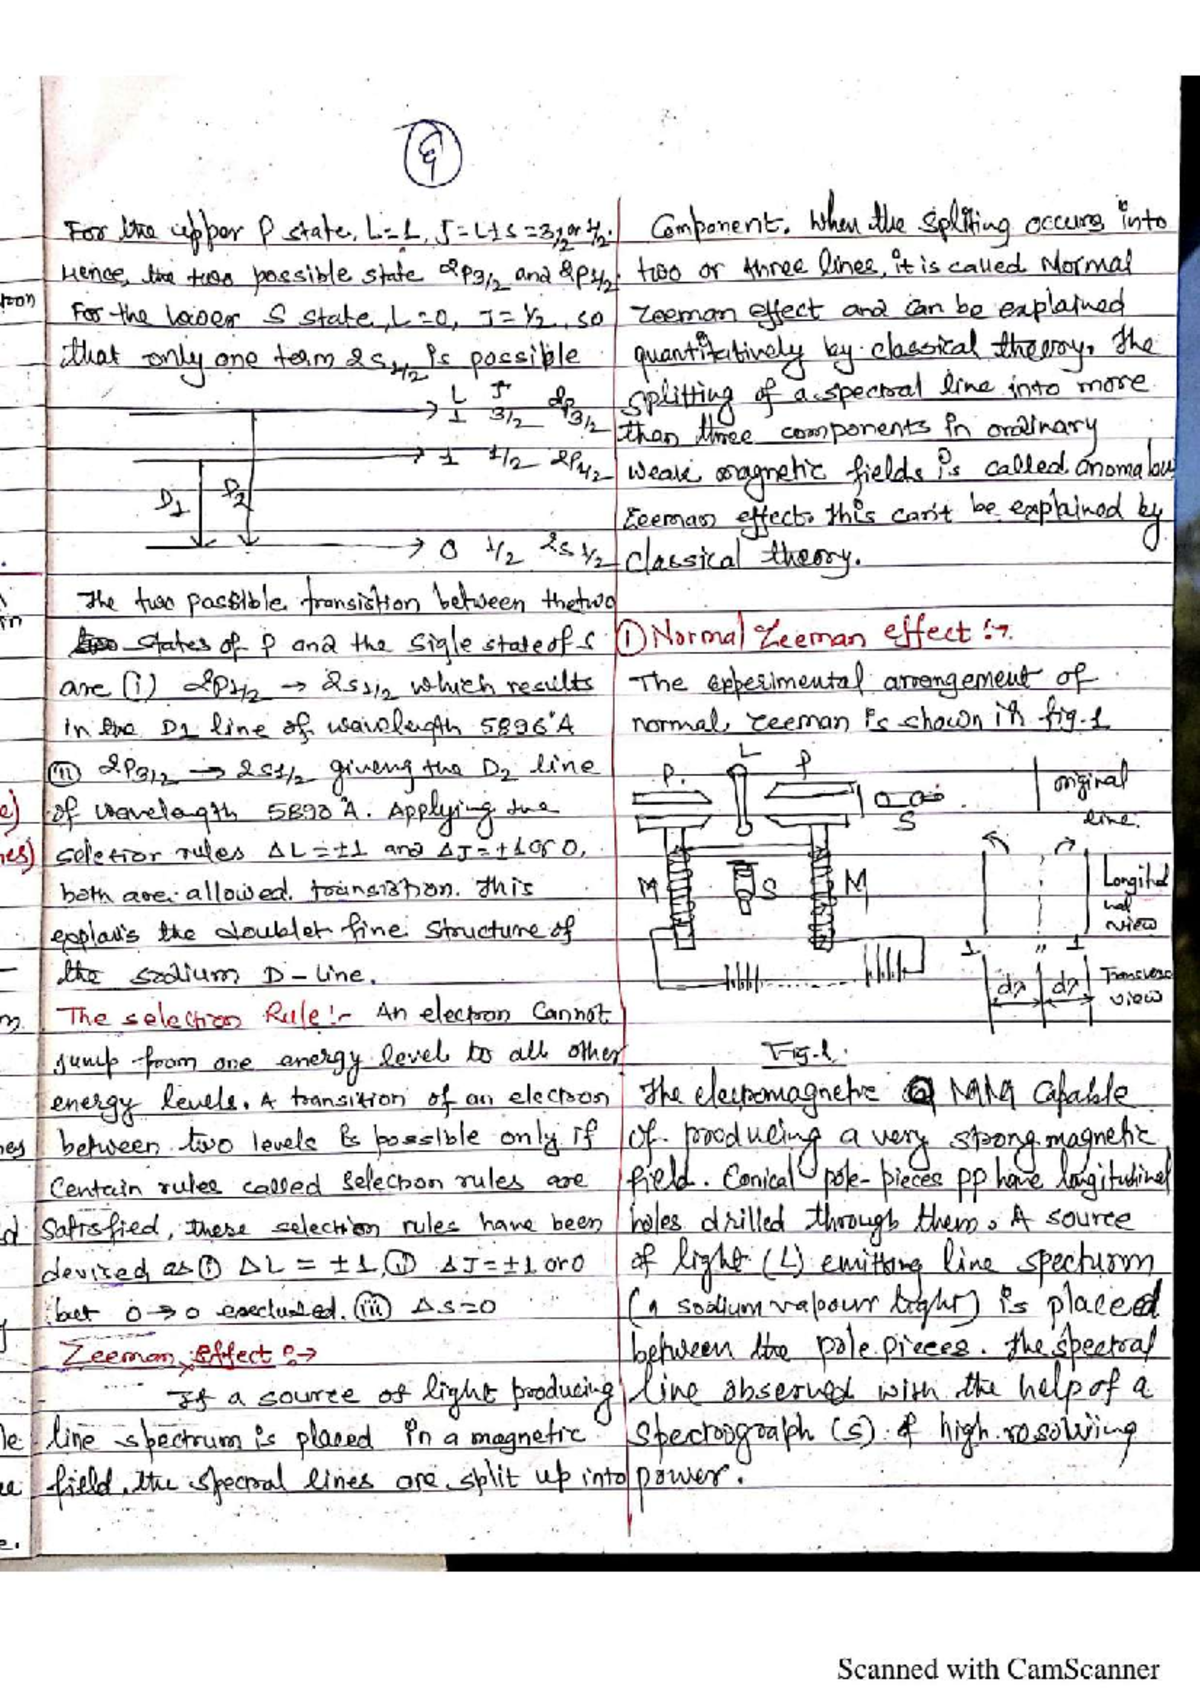 ६
For the upper P state, L=1, J=L±S=3/2 or 1/2.
Hence, the two possible state 2P3/2 and 2P1/2.
For the lower S state, L=0, J=1/2, so
that only one term 2S1/2 is possible
L J
1 3/2 2P3/2
1 1/2 2P1/2
D1 D2
0 1/2 2S1/2
The two possible transistion between the two
states of P and the sigle state of s
are (i) 2P1/2 → 2S1/2 which results
in the D1 line of wavelength 5896°A
(ii) 2P3/2 → 2S1/2 giveng the D2 line
of wavelength 5890°A. Applying the
seletior rules ΔL=±1 and ΔJ=±1 or 0,
both are allowed. transistion. This
explais the doublet fine structure of
the sodium D-line.
The selection Rule:- An electron cannot
jump from one energy level to all other
energy levels. A transition of an electron
between two levels is possible only if
Centain rules called selection rules are
Satisfied, these selection rules have been
devised as (i) ΔL = ±1, (ii) ΔJ=±1 or 0
but 0→0 execluded. (iii) ΔS=0
Zeeman Effect :→
If a source of light producing
line spectrum is placed in a magnetic
field, the specral lines are split up into
Component. When the splitting occurs into
two or three lines, it is called Normal
Zeeman effect and can be explained
quantitatively by classical theory. The
splitting of a spectral line into more
than three components in ordinary
weak magnetic fields is called anomalou
Zeeman effect. this can't be explained by
classical theory.
① Normal Zeeman effect :→
The experimental arrongement of
normal zeeman is shown in fig-1
P. L P
S
original
line.
M S M
Longitud
nal
view
1 " 1
dλ dλ
Transverse
view
Fig-1.
The elecromagnetic MM Capable
of producing a very strong magnetic
field. Conical pole-pieces PP have longitudinal
holes drilled through them. A source
of light (L) emitting line specturm
(a sodium vapour light) is placed
between the pole pieces. The spectral
line observed with the help of a
spectrograph (S) of high resolving
power.
tron
in
e)
nes)
m.
nes
d
le
e.
Scanned with CamScanner